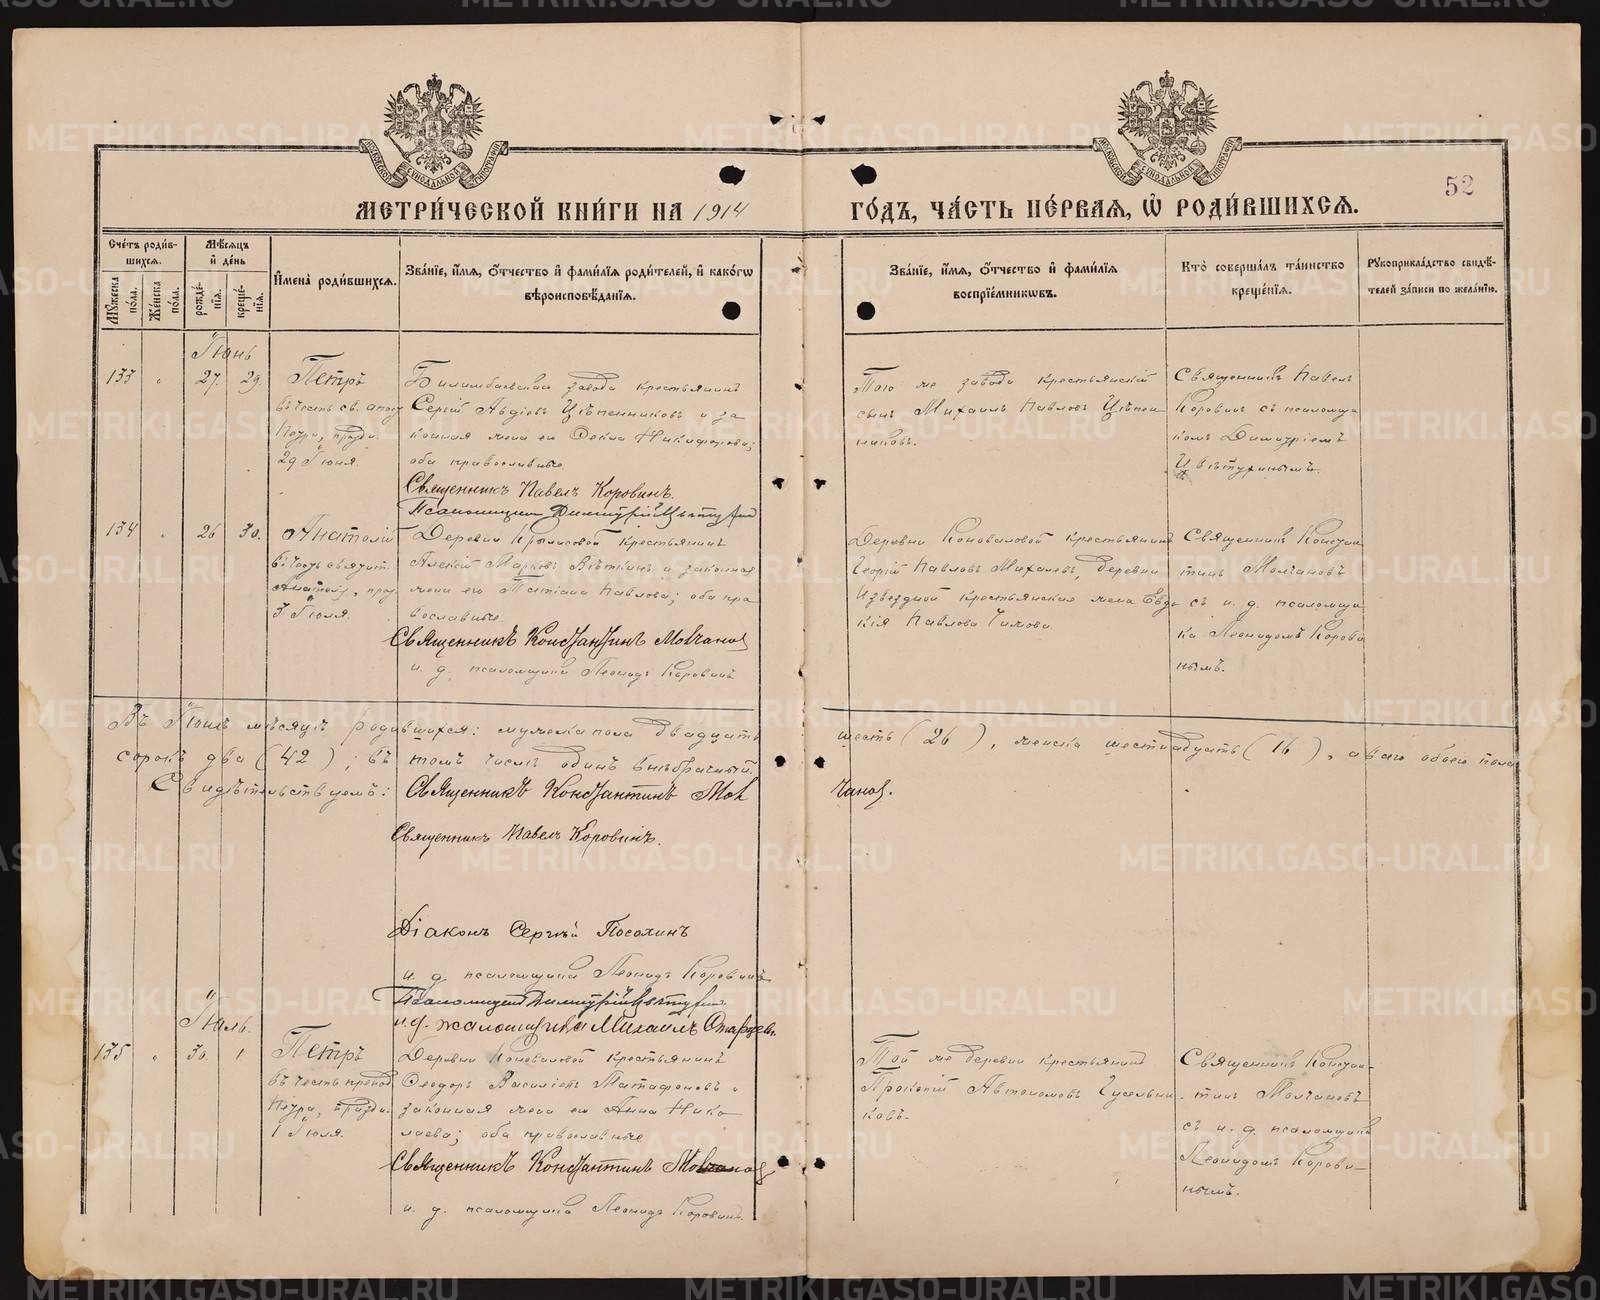 52
МЕТРИ́ЧЕСКОЙ КНИ́ГИ НА 1914 ГО́ДЪ, ЧА́СТЬ ПЕ́РВАЯ, Ѡ҆ РОДИ́ВШИХСЯ.
Сче́тъ роди́в-
шихся.
Мѣ́сяцъ
и҆ де́нь
Мꙋ́жеска по́ла.
Же́нска по́ла.
рожде́-
нїя.
креще́-
нїя.
И҆мена̀ роди́вшихся.
Зва́нїе, и҆́мя, ѻ҆́тчество и҆ фами́лїя роди́телей, и҆ како́гѡ
вѣроисповѣ́данїя.
Зва́нїе, и҆́мя, ѻ҆́тчество и҆ фами́лїя
воспрїе́мникѡвъ.
Кто̀ соверша́лъ та́инство
креще́нїя.
Рꙋкоприкла́дство свидѣ́-
телей за́писи по жела́нїю.
Іюнь
133 " 27. 29.
Петръ
въ честь св. апос.
Петра, празд.
29 Іюня.
Билимбаевскаго завода крестьянинъ
Сергій Авдіевъ Цѣпенниковъ и за
конная жена его Ѳекла Никифорова;
оба православные.
Священникъ Павелъ Коровинъ.
Псаломщикъ Димитрій Цвѣтухин
Того же завода крестьянскій
сынъ Михаилъ Павловъ Цѣпен
никовъ.
Священникъ Павелъ
Коровинъ съ псаломщи
комъ Димитріемъ
Цвѣтухинымъ.
134 " 26 30.
Анатолій
въ честь святит.
Анатолія, праз.
3 Іюля.
Деревни Крылосовой крестьянинъ
Алексѣй Марковъ Вѣткинъ и законная
жена его Татіана Павлова; оба пра
вославные.
Священникъ Константинъ Молчанов
и. д. псаломщика Леонидъ Коровинъ
Деревни Коноваловой крестьянинъ
Георгій Павловъ Михалевъ, деревни
Извездной крестьянская жена Евдо
кія Павлова Чижова.
Священникъ Констан
тинъ Молчановъ
съ и. д. псаломщи
ка Леонидомъ Корови
нымъ.
Въ Іюнѣ мѣсяцѣ родившихся: мужеска пола двадцать шесть (26), женска шестнадцать (16), а всего обоего пола
сорокъ два (42); въ томъ числѣ одинъ внѣбрачный.
Свидѣтельствуемъ: Священникъ Константинъ Молчанов.
Священникъ Павелъ Коровинъ.
Діаконъ Сергѣй Посохинъ
и. д. псаломщика Леонидъ Коровинъ
Псаломщикъ Димитрій Цвѣтухин.
и. д. псаломщика Михаилъ Старцевъ.
Іюль.
135 " 30. 1.
Петръ
въ честь препод.
Петра, праздн.
1 Іюля.
Деревни Коноваловой крестьянинъ
Ѳеодоръ Василіевъ Татафоновъ и
законная жена его Анна Нико
лаева; оба православные
Священникъ Константинъ Молчанов
и. д. псаломщика Леонидъ Коровинъ.
Той же деревни крестьянинъ
Прокопій Автономовъ Гусельни-
ковъ.
Священникъ Констан-
тинъ Молчановъ
съ и. д. псаломщика
Леонидомъ Корови-
нымъ.